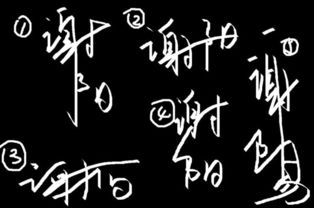 ① 谢阳
② 谢阳
③ 谢阳
④ 谢阳
⑤ 谢陽